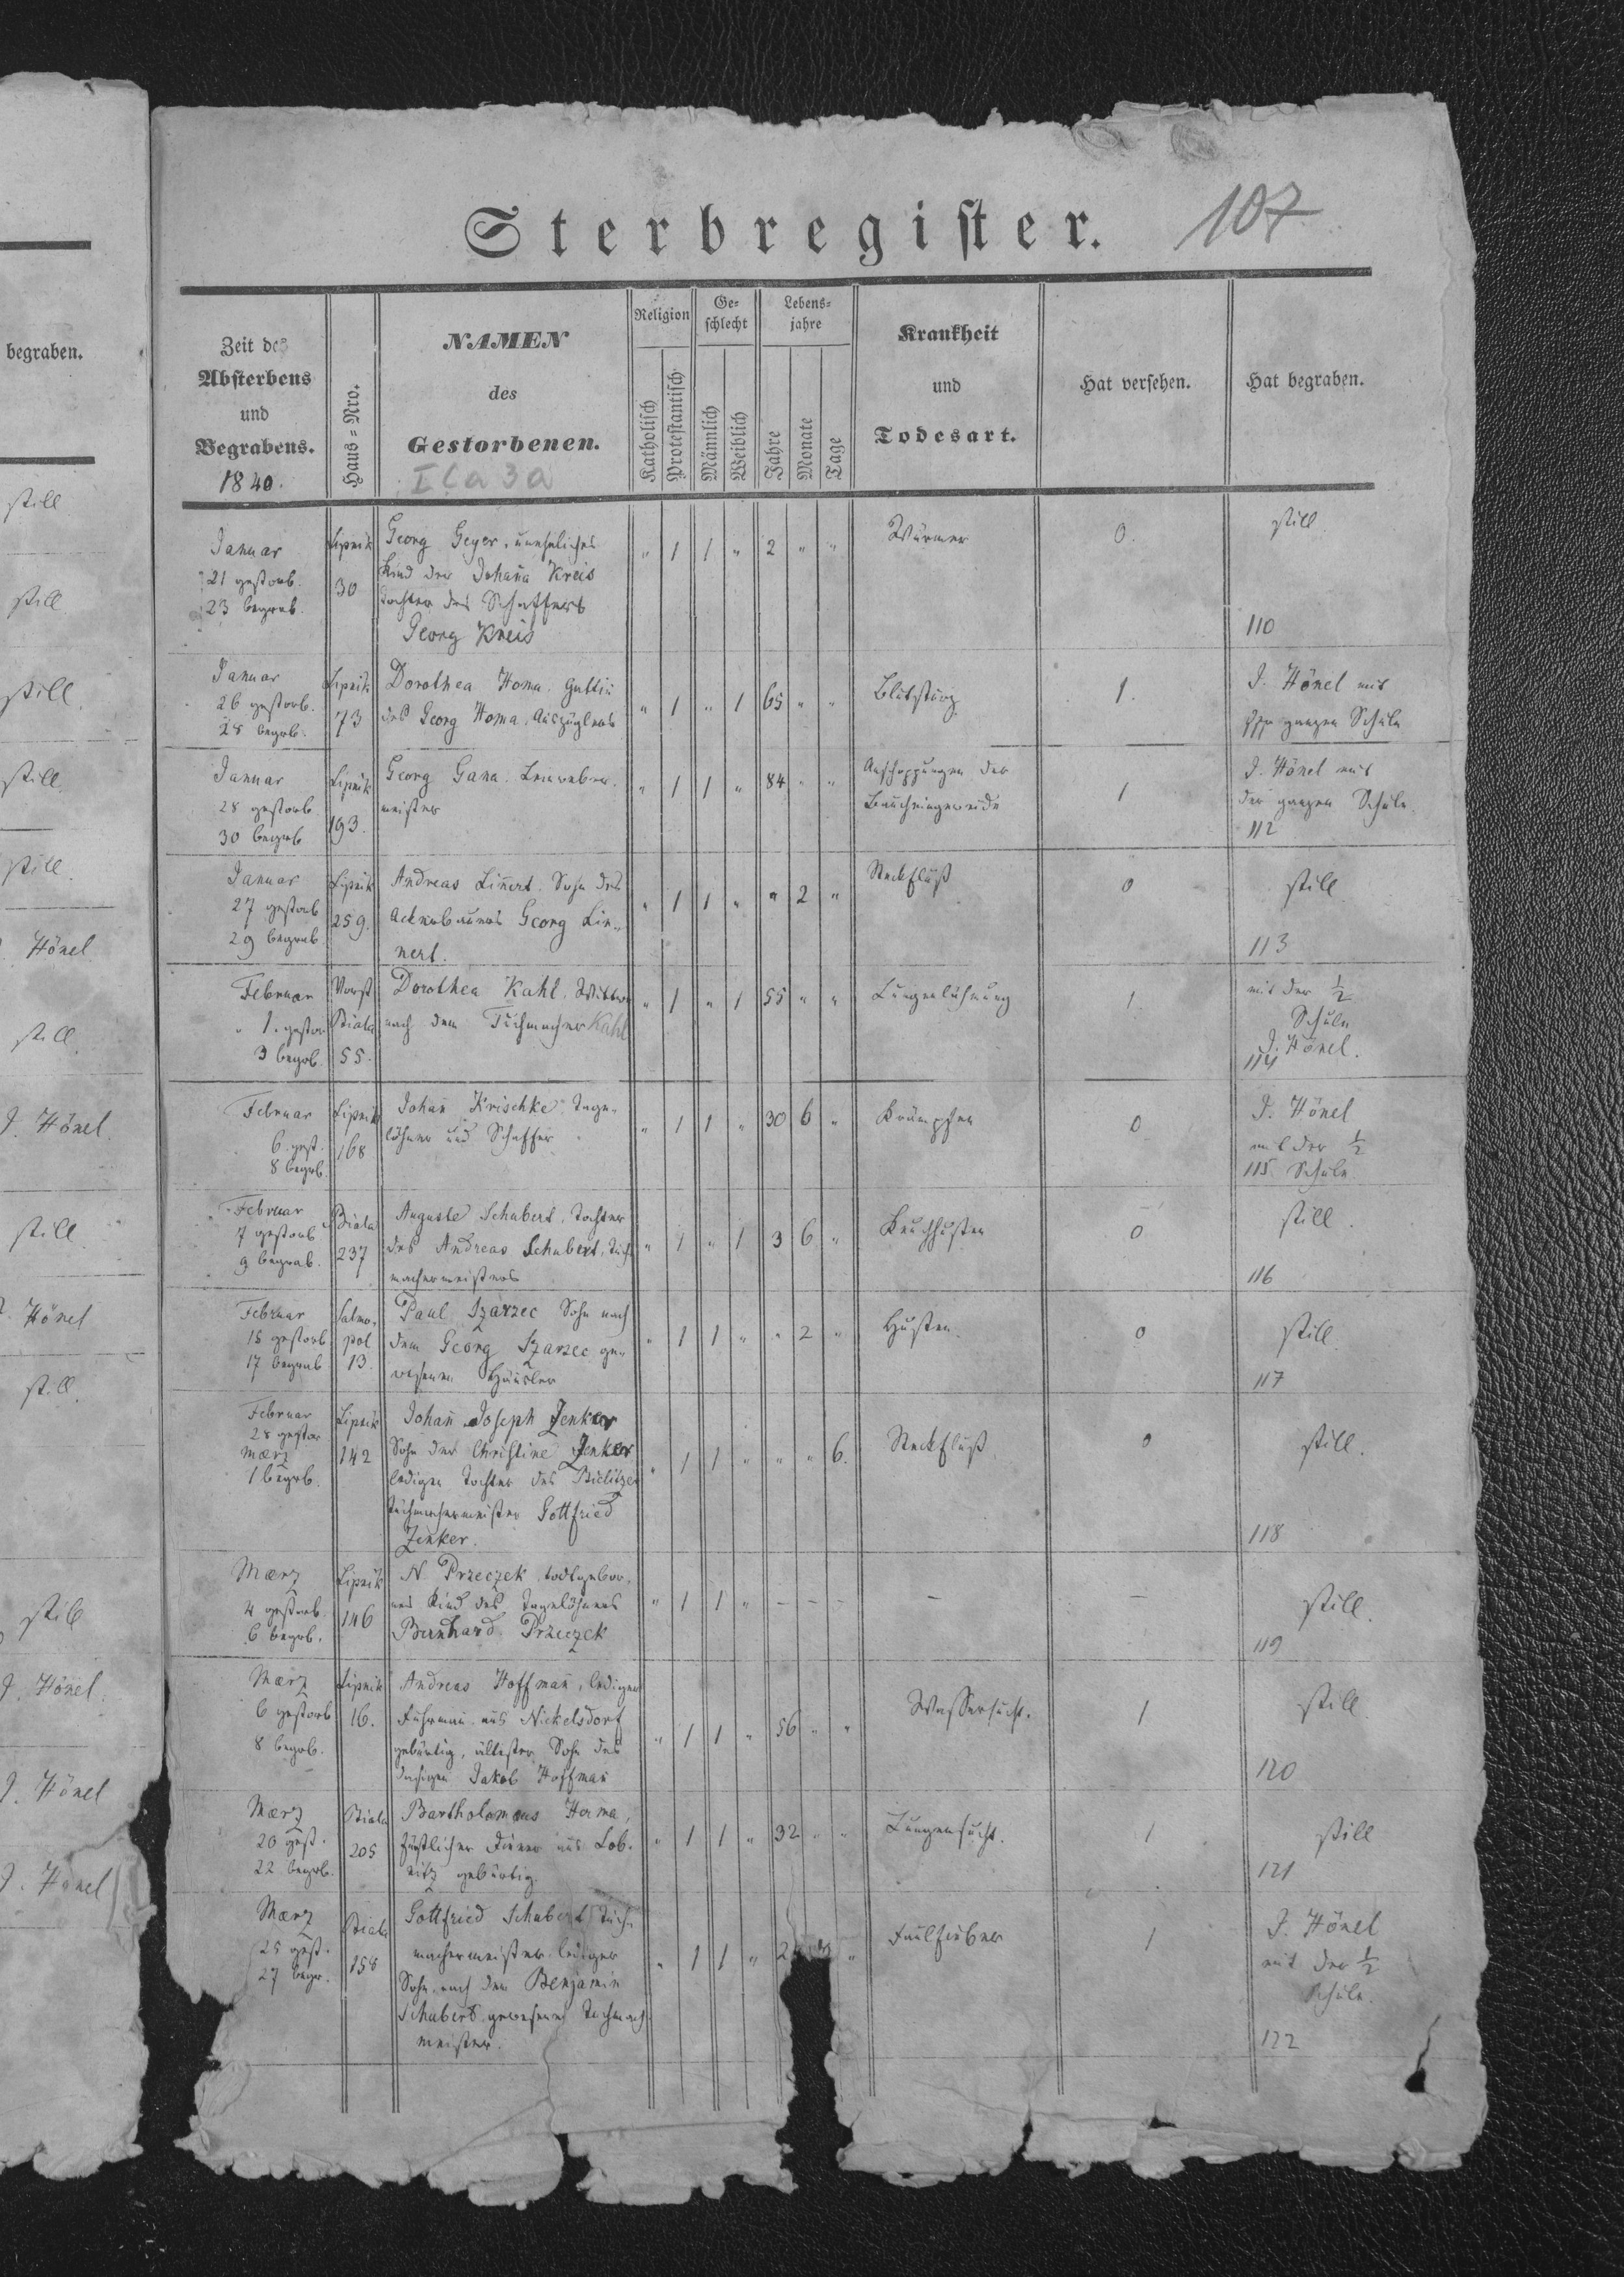 begraben.
still
still.
still.
still.
still.
Hönel.
still.
J. Hönel.
still
Hönel
still.
still
J. Hönel.
J. Hönel
J. Hönel
Sterbregister.
107
Zeit des
Absterbens
und
Begrabens.
1840.
Haus=Nro.
NAMEN
des
Gestorbenen.
Religion
Katholisch
Protestantisch
Ge=
schlecht
Männlich
Weiblich
Lebens=
jahre
Jahre
Monate
Tage
Krankheit
und
Todesart.
Hat versehen.
Hat begraben.
Januar
21 gestorb.
23 begrab.
Lipnik
30
Georg Geyer, unehliches
Kind der Johana Kreis
Tochter des Schaffers
Georg Kreis
" 1 1 " 2 " "
Würmer
0.
still
110
Januar
26 gestorb.
28 begrb.
Lipnik
73
Dorothea Homa, Gattin
des Georg Homa, Auszüglers
" 1 " 1 65 " "
Blutsturz
1.
J. Hönel mit
ganzen Schule
Januar
28 gestorb
30 begrb
Lipnik
193.
Georg Gana. Leinweber-
meister
" 1 1 " 84 " "
Anschoppungen der
Baucheingeweide
1
J. Hönel mit
der ganzen Schule.
112
Januar
27 gestorb
29 begrab.
Lipnik
259.
Andreas Linert. Sohn des
Ackerbauers Georg Lin-
nert.
" 1 1 " " 2 "
Steckfluß
0
still.
113
Februar
" 1. gestor.
3 begrb.
Vorst
Biala
55.
Dorothea Kahl, Wittwe
nach dem Tuchmacher Kahl
" 1 " 1 55 " "
Lungenlähmung
1.
mit der ½
Schule
J. Hönel.
114
Februar
6. gest.
8 begrb.
Lipnik
168
Johan Krischke, Tage-
löhner und Schaffer
" 1 1 " 30 6 "
Krämpfen
0
J. Hönel
mit der ½
115. Schule
Februar
7 gestorb
9 begrab.
Biala
237
Auguste Schubert, Tochter
des Andreas Schubert, Tuch-
machermeisters
" 1 " 1 3 6 "
Keuchhusten
0
still.
116
Februar
15 gestorb
17 begrab
Salmo-
pol
13.
Paul Szarzec Sohn nach
dem Georg Szarzec ge-
wesenen Häusler
" 1 1 " " 2 "
Husten.
0
still.
117
Februar
28 gestor
März
1 begrb.
Lipnik
142
Johan Joseph Zenker
Sohn der Christine Zenker
ledigen Tochter des Bielitzer
Tuchmachermeister Gottfried
Zenker.
" 1 1 " " " 6.
Steckfluß
0
still.
118
März
4 gestorb.
6 begrb.
Lipnik
146
N. Przeczek, todtgebor-
nes Kind des Tagelöhners
Bernhard Przeczek
" 1 1 " - - -
-
-
still.
119
März
6 gestorb
8 begrb.
Lipnik
16.
Andreas Hoffman, lediger
Fuhrman aus Nickelsdorf
gebürtig, ältester Sohn des
dasigen Jakob Hoffman
" 1 1 " 56 " "
Wassersucht.
1
still.
120
März
20 gest.
22 begrb.
Biala
205
Bartholomäus Homa,
fürstlicher Diener aus Lob-
nitz gebürtig
" 1 1 " 32 " "
Lungensucht.
1
still
121
März
25 gest.
27 begr.
Biala
158
Gottfried Schubert Tuch-
machermeister, lediger
Sohn nach dem Benjamin
Schubert gewesenen Tuchmach
meister.
" 1 1 " "
Faulfieber
1
J. Hönel
mit der ½
Schule.
122